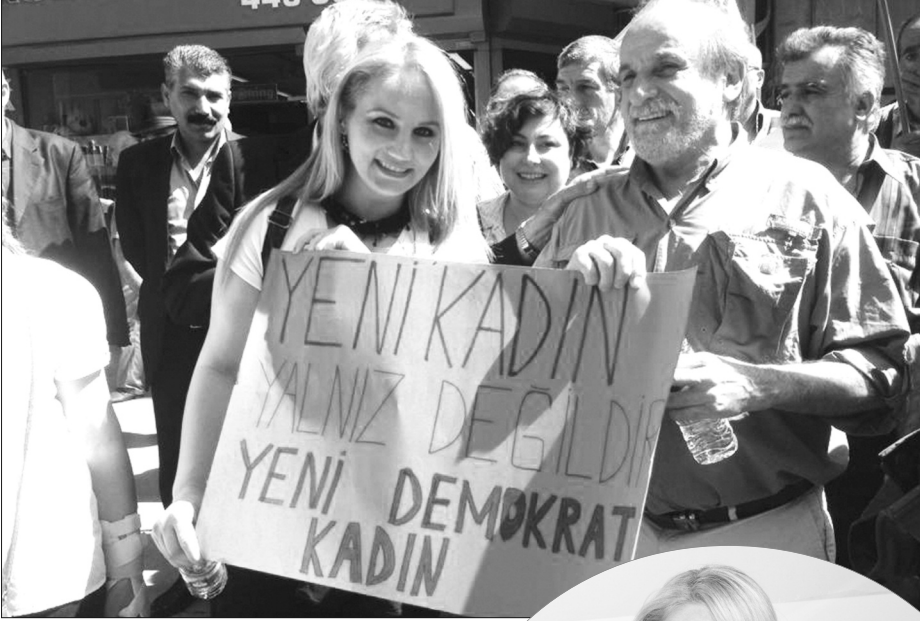 YENİ KADIN
YALNIZ DEĞİLDİR
YENİ DEMOKRAT
KADIN